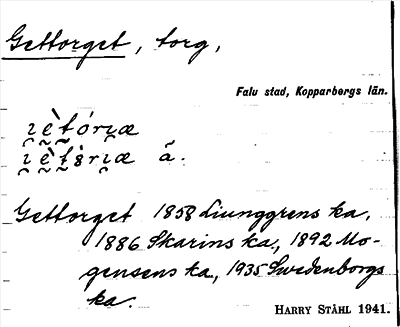 Gettorget, torg,
Falu stad, Kopparbergs län.
ı̯ètórı̯æ
ı̯ètṣrı̯æ ã.
Gettorget 1858 Liunggrens ka,
1886 Skarins ka, 1892 Mo-
gensens ka, 1935 Swedenborgs
ka.
HARRY STÅHL 1941.